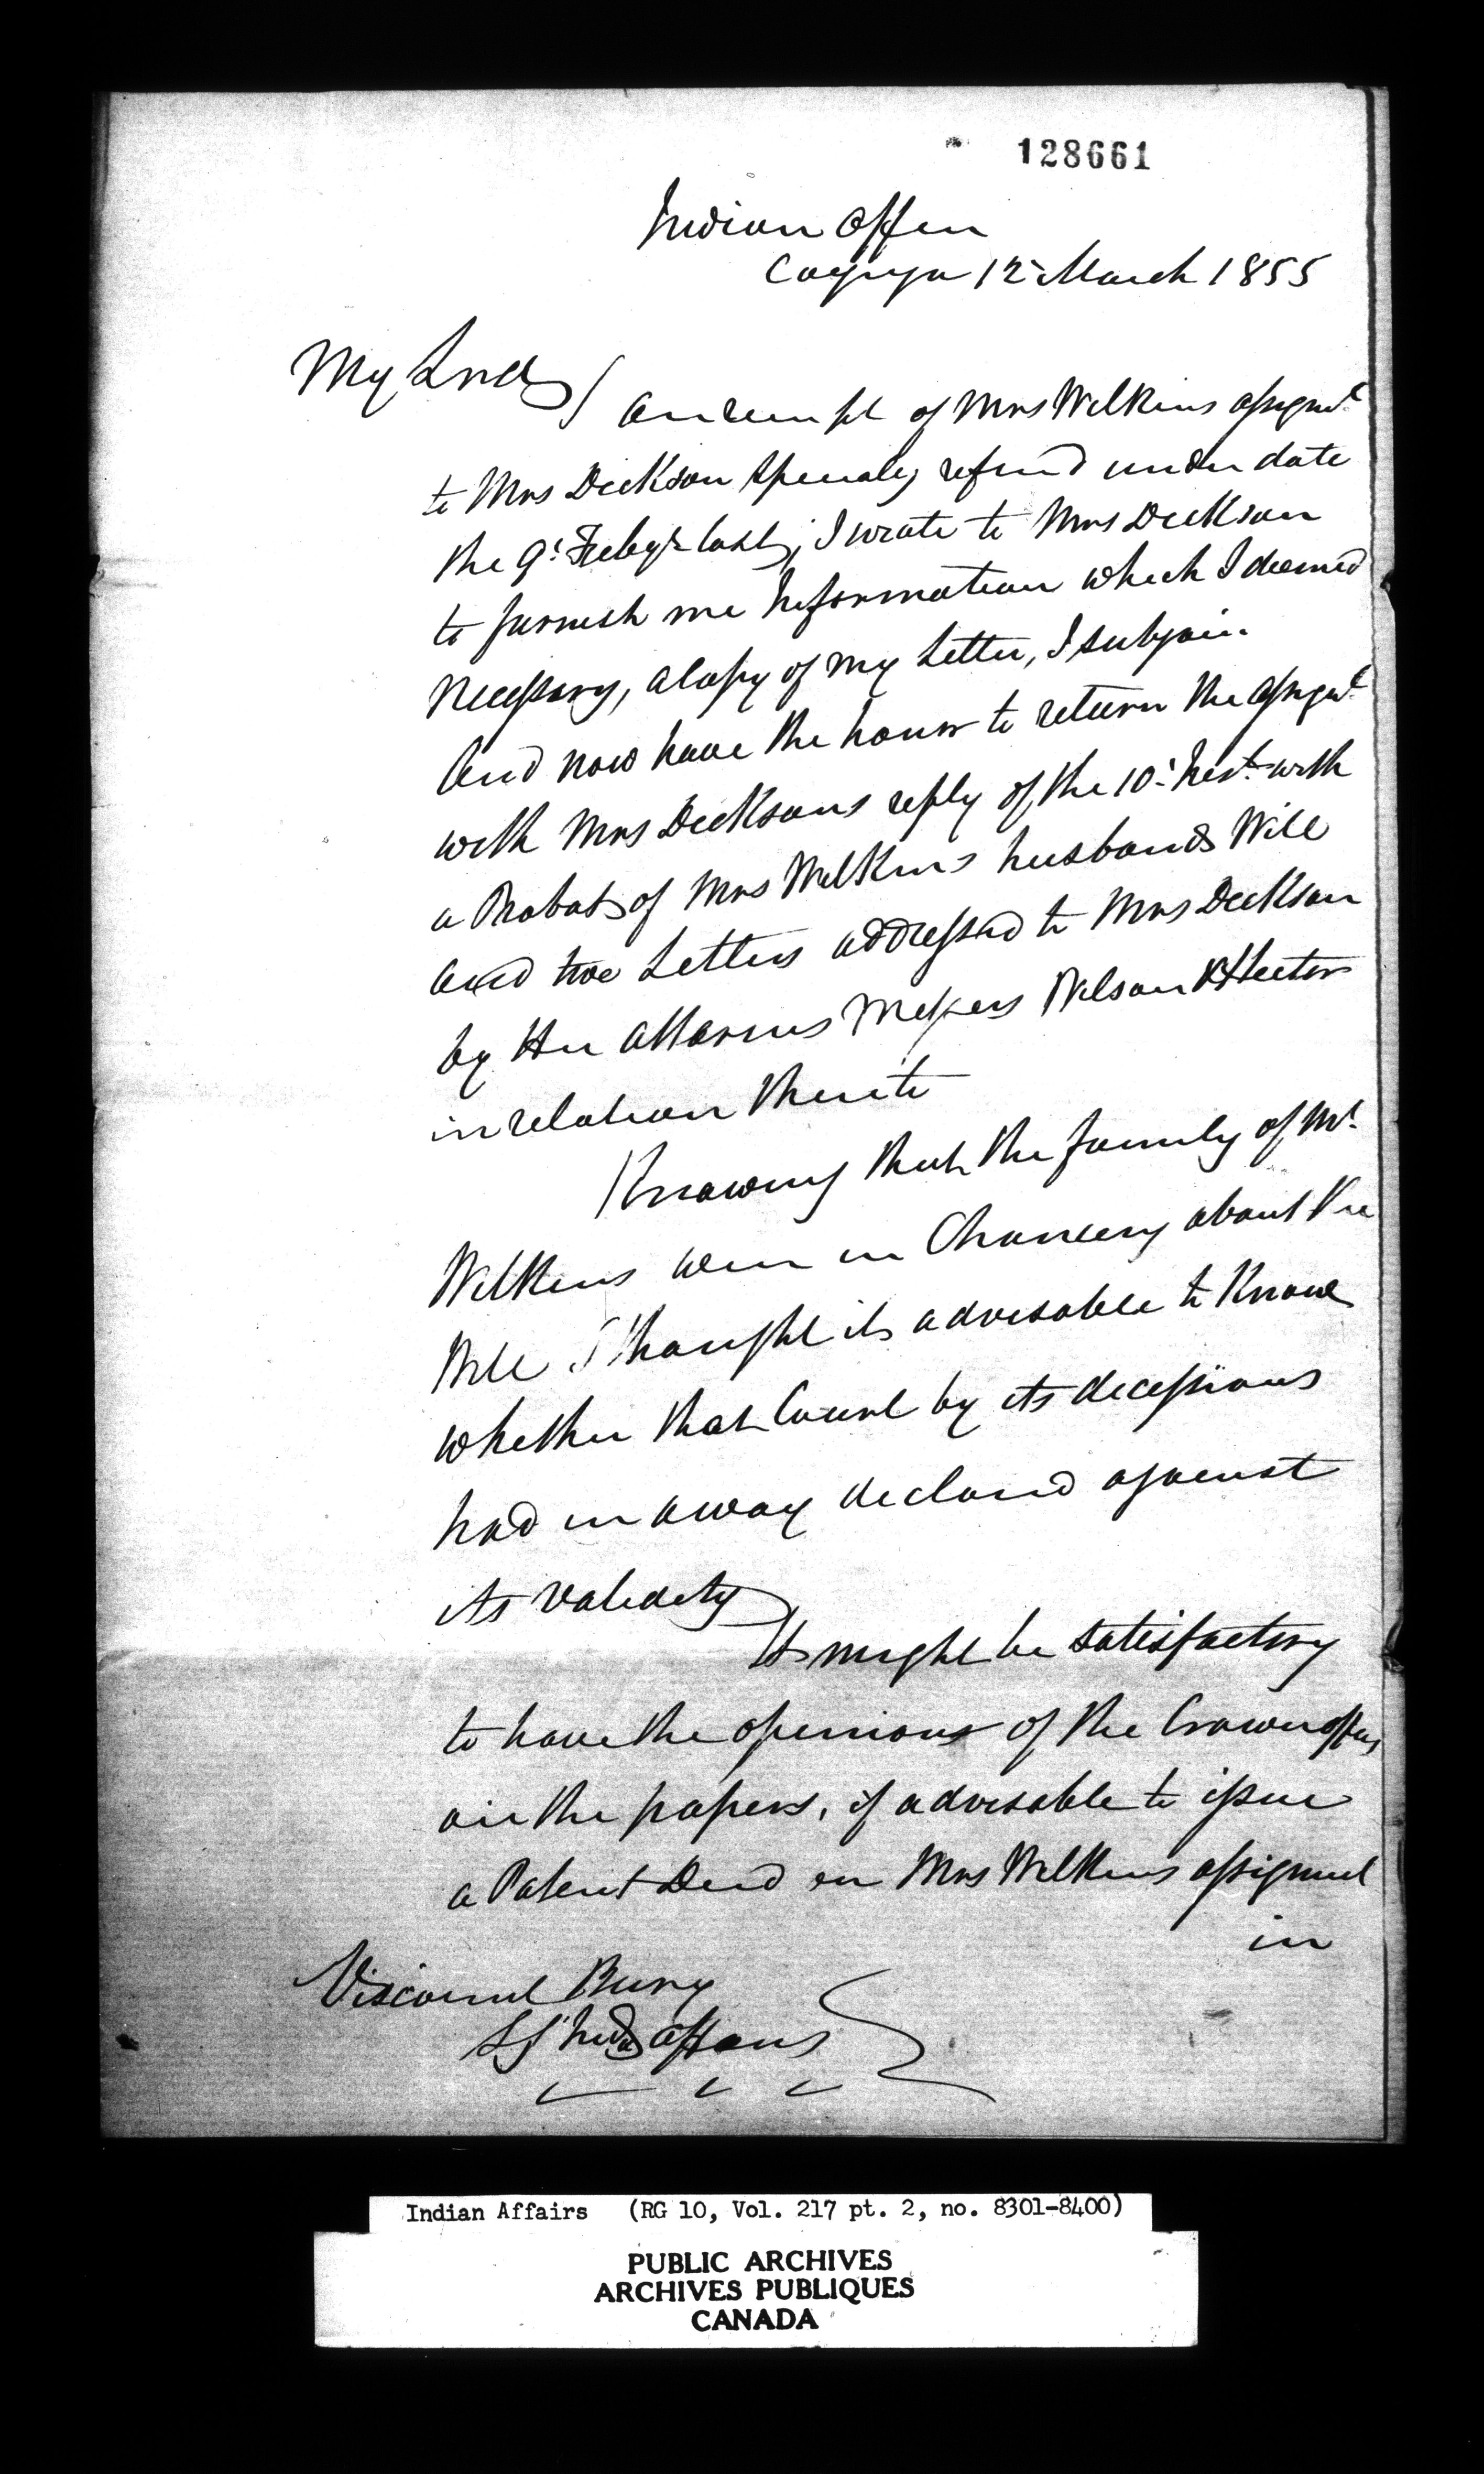 128661
Indian Office
Cayuga 12 March 1855
My Lord
On receipt of Mrs Wilkins assignt
to Mrs Dickson refered under date
the 9t Feby last, I wrote to Mrs Dickson
to furnish me Information which I deemed
necessary, a Copy of my Letter, I subjoin
And now have the honor to return the assignt
with Mrs Dicksons reply of the 10t Inst with
a Probate of Mrs Wilkins husbands Will
and two Letters addressed to Mrs Dickson
by Her attornies Messers Wilson & Hector
in relation thereto
Knowing that the family of Mr
Wilkins were in Chancery about the
Will I thought it advisable to Know
whether that Court by its decessions
had in away declared against
its validity
It might be satisfactory
to have the opinions of the Crown offers
on the papers, if advisable to issue
a Patent Deed on Mrs Wilkins assignment
in
Viscount Bury
Affairs
Indian Affairs (RG 10, Vol. 217 pt. 2, no. 8301-8400)
PUBLIC ARCHIVES
ARCHIVES PUBLIQUES
CANADA